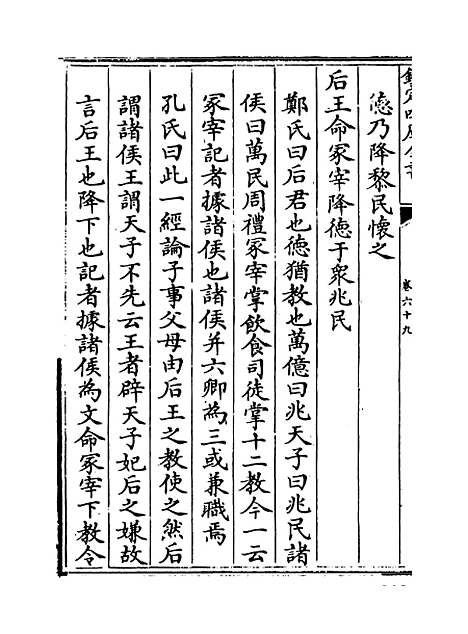 德乃降黎民懷之
后王命冢宰降德于衆兆民
鄭氏曰后君也德猶教也萬億曰兆天子曰兆民諸
侯曰萬民周禮冢宰掌飲食司徒掌十二教今一云
冢宰記者據諸侯也諸侯并六卿為三或兼職焉
孔氏曰此一經論子事父母由后王之教使之然后
謂諸侯王謂天子不先云王者辟天子妃后之嫌故
言后王也降下也記者據諸侯為文命冢宰下教令
卷六十九